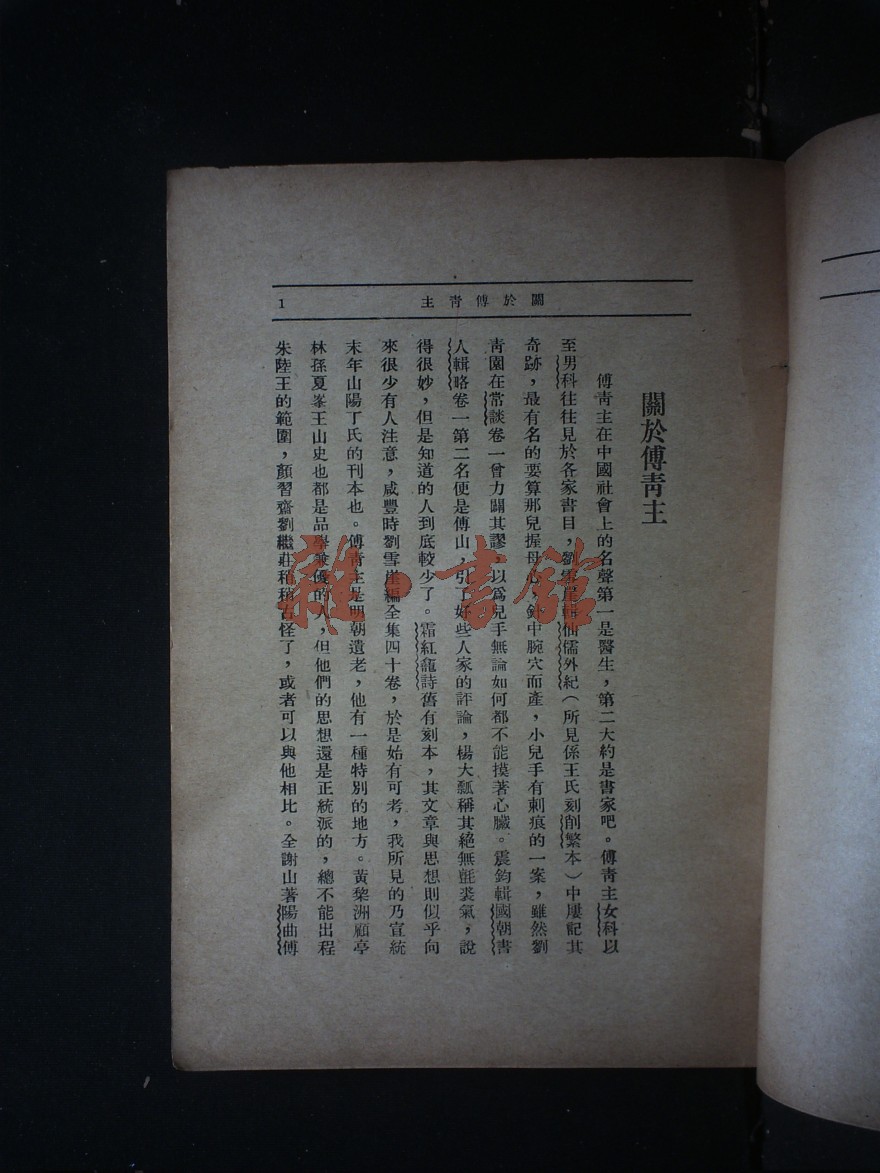 關於傅靑主
1
關於傅靑主
傅靑主在中國社會上的名聲第一是醫生，第二大約是書家吧。傅靑主女科以
至男科往往見於各家書目，劉雪崖輯仙儒外紀（所見係王氏刻削繁本）中屢記其
奇跡，最有名的要算那兒握母心，針中腕穴而產，小兒手有刺痕的一案，雖然劉
靑園在常談卷一曾力闢其謬，以爲兒手無論如何都不能摸著心臟。震鈞輯國朝書
人輯略卷一第二名便是傅山，引了好些人家的評論，楊大瓢稱其絕無氈裘氣，說
得很妙，但是知道的人到底較少了。霜紅龕詩舊有刻本，其文章與思想則似乎向
來很少有人注意，咸豐時劉雪崖編全集四十卷，於是始有可考，我所見的乃宣統
末年山陽丁氏的刊本也。傅靑主是明朝遺老，他有一種特別的地方。黃黎洲顧亭
林孫夏峯王山史也都是品學兼優的人，但他們的思想還是正統派的，總不能出程
朱陸王的範圍，顏習齋劉繼莊稍稍古怪了，或者可以與他相比。全謝山著陽曲傅
雜·書館